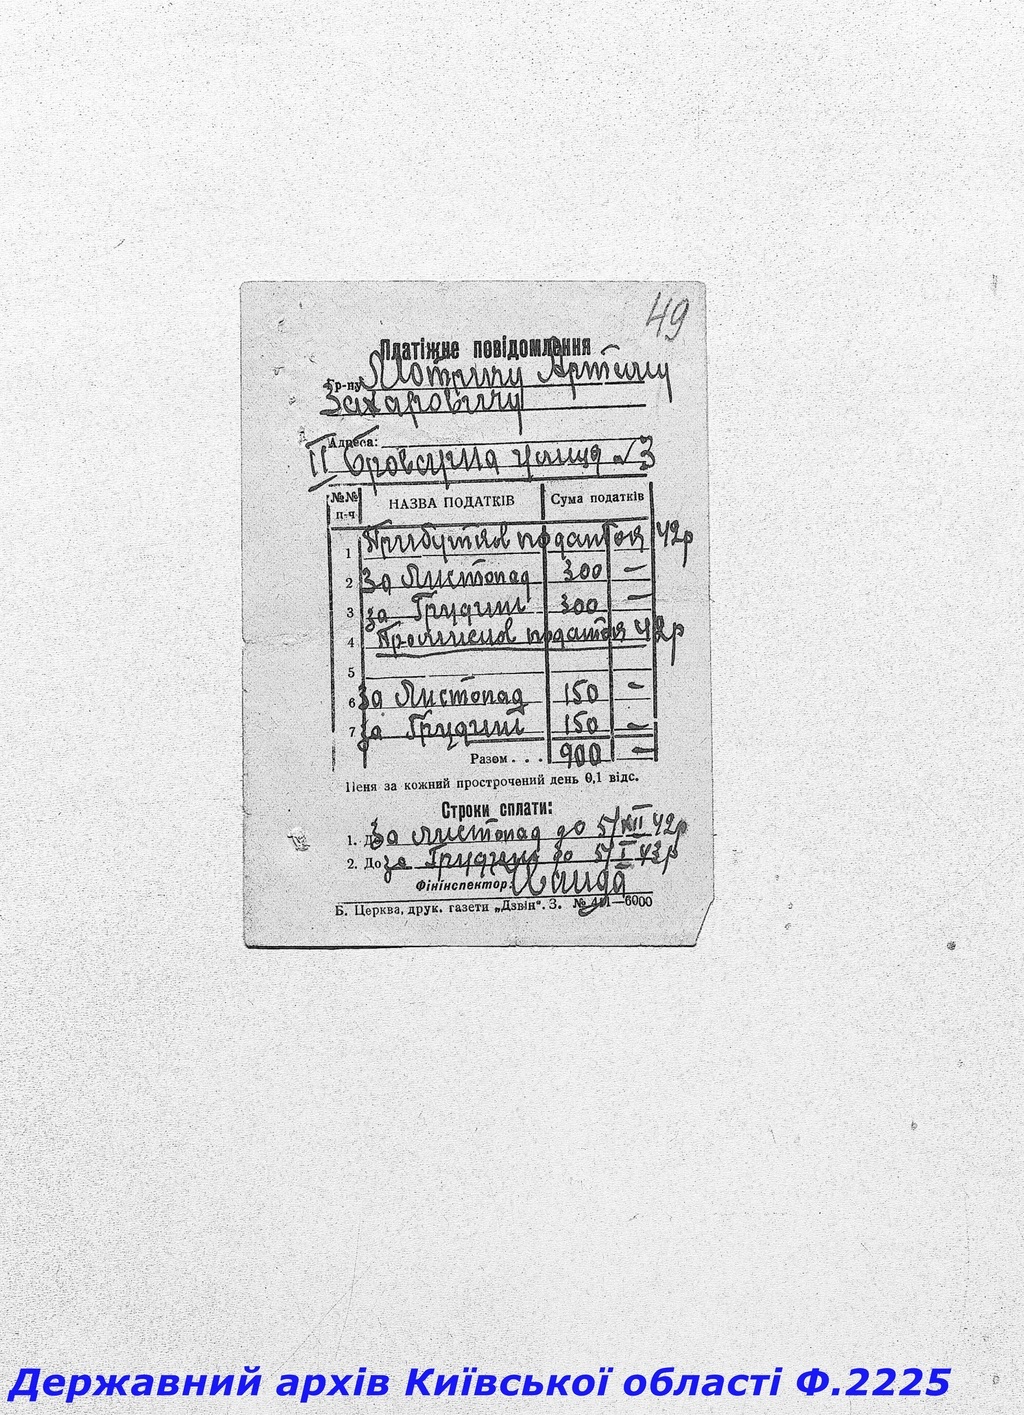 49
Платіжне повідомлення
Гр-ну Мотричу Артему
Захаровичу
Адреса:
II Броварна улиця №3
№№ п-ч НАЗВА ПОДАТКІВ Сума податків
1 Прибутков податок 42р
2 За Листопад 300 —
3 за Грудень 300 —
4 податок 42р
5
6 За Листопад 150 —
7 за Грудень 150 —
Разом . . . 900 —
Пеня за кожний прострочений день 0,1 відс.
Строки сплати:
1. До За листопад до 5/XII 42р
2. До за Грудень до 5/I 43р
Фінінспектор:
Б. Церква, друк. газети „Дзвін“. З. № 411—6000
Державний архів Київської області Ф.2225